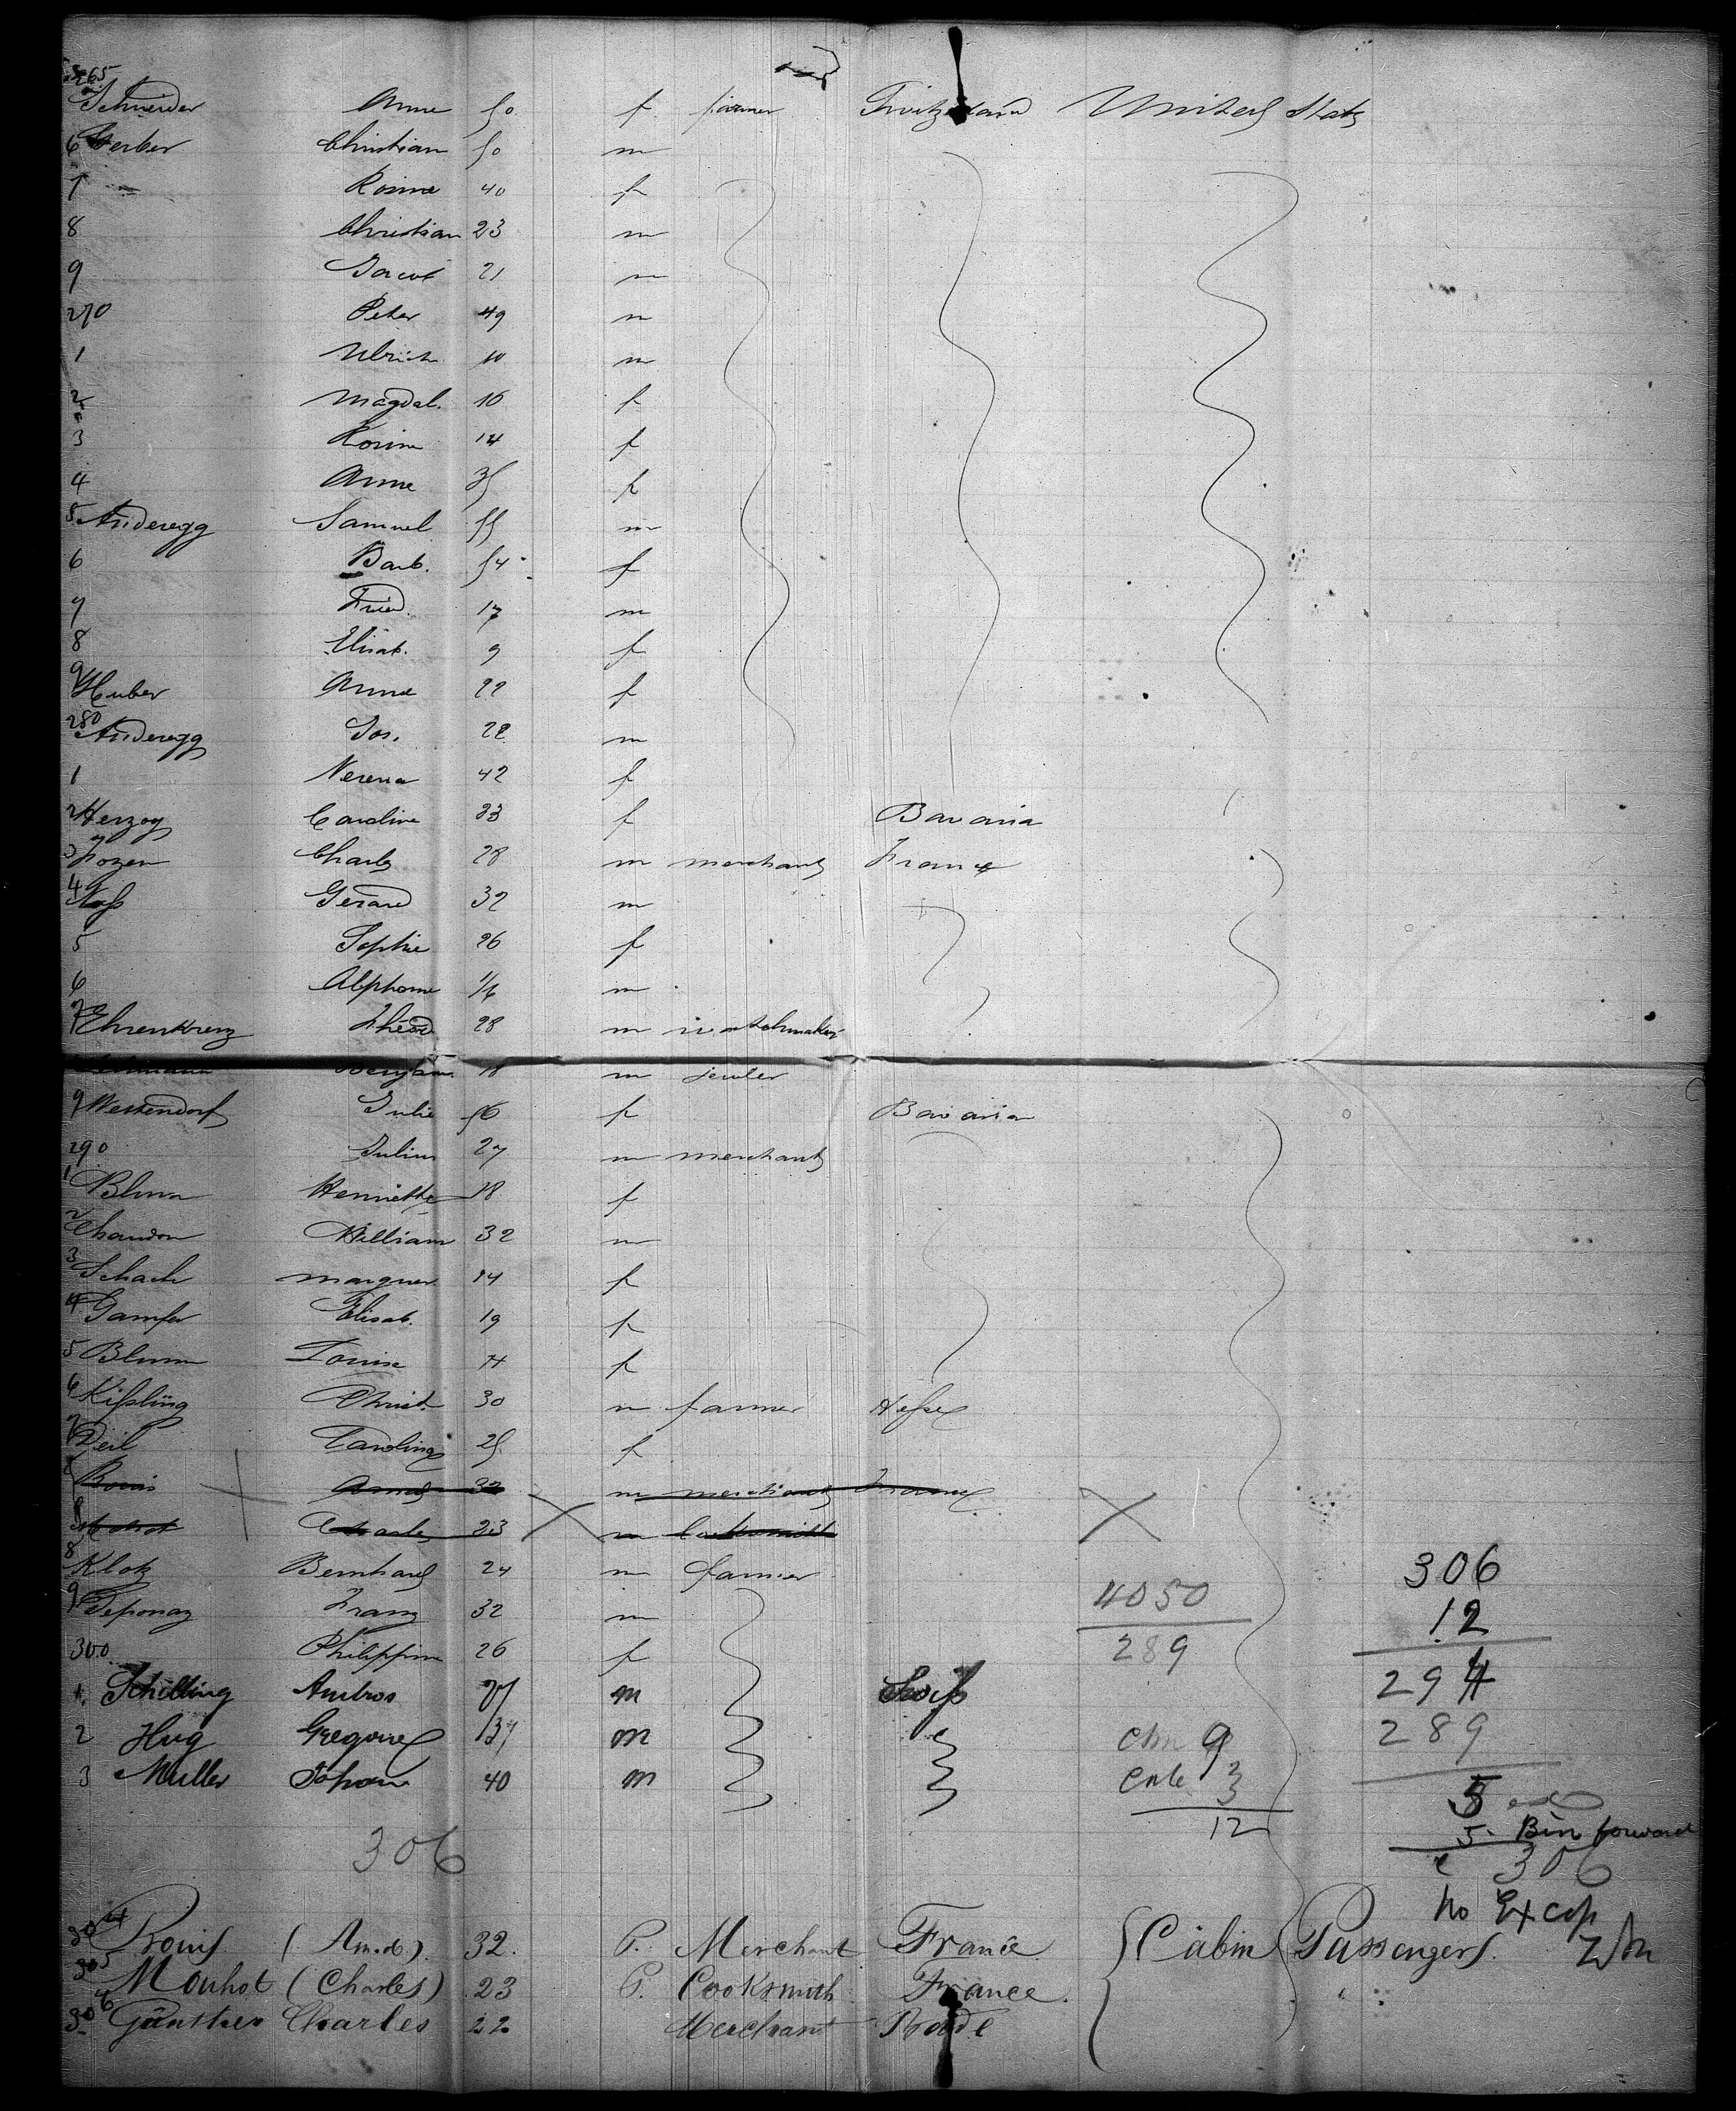 265
Schneider Anne 50 f farmer Switzerland United States
6 Gerber Christian 50 m
7 Rosine 40 f
8 Christian 23 m
9 Jacob 21 m
270 Peter 49 m
1 Ulrich 10 m
2 Magdal. 16 f
3 Rosine 14 f
4 Anne 35 f
5 Anderegg Samuel 55 m
6 Barb. 54 f
7 Fried. 17 m
8 Elisab. 9 f
9 Huber Anne 22 f
280 Anderegg Jos. 22 m
1 Verena 42 f
2 Herzog Caroline 23 f Bavaria
3 Charles 28 m merchant France
4 Gerard 32 m
5 Sophie 26 f
6 Alphonse m
7 Ehrenkrenz Théod 28 m watchmaker
Benjam. 18 m jewler
9 Westendorf Julie 56 f Bavaria
290 Julius 27 m merchant
1 Blum Henriette 18 f
2 Chandon William 32 m
3 Schach marguer 14 f
4 Gamfer Elisab. 19 f
5 Blum Louise f
6 Kißling Christ. 30 m farmer Hesse
7 Deil Caroline 25 f
Amed 32 m merchant France
Charles 23 m
8 Klotz Bernhard 24 m farmer
9 Deponaz Franz 32 m
300 Philippine 26 f
1. Schilling Ambros m Swiss
2 Hug Gregoire 37 m
3 Muller 40 m
306
4050
289
306
12
294
289
5
5. forward
306
chn 9
3
12
No Ex cap
304 Rouis (Amed.) 32. P. Merchant France Cabin Passengers.
305 Mouhot (Charles) 23 P. Cooksmith France "
306 Günther Charles 22 Merchant Bade